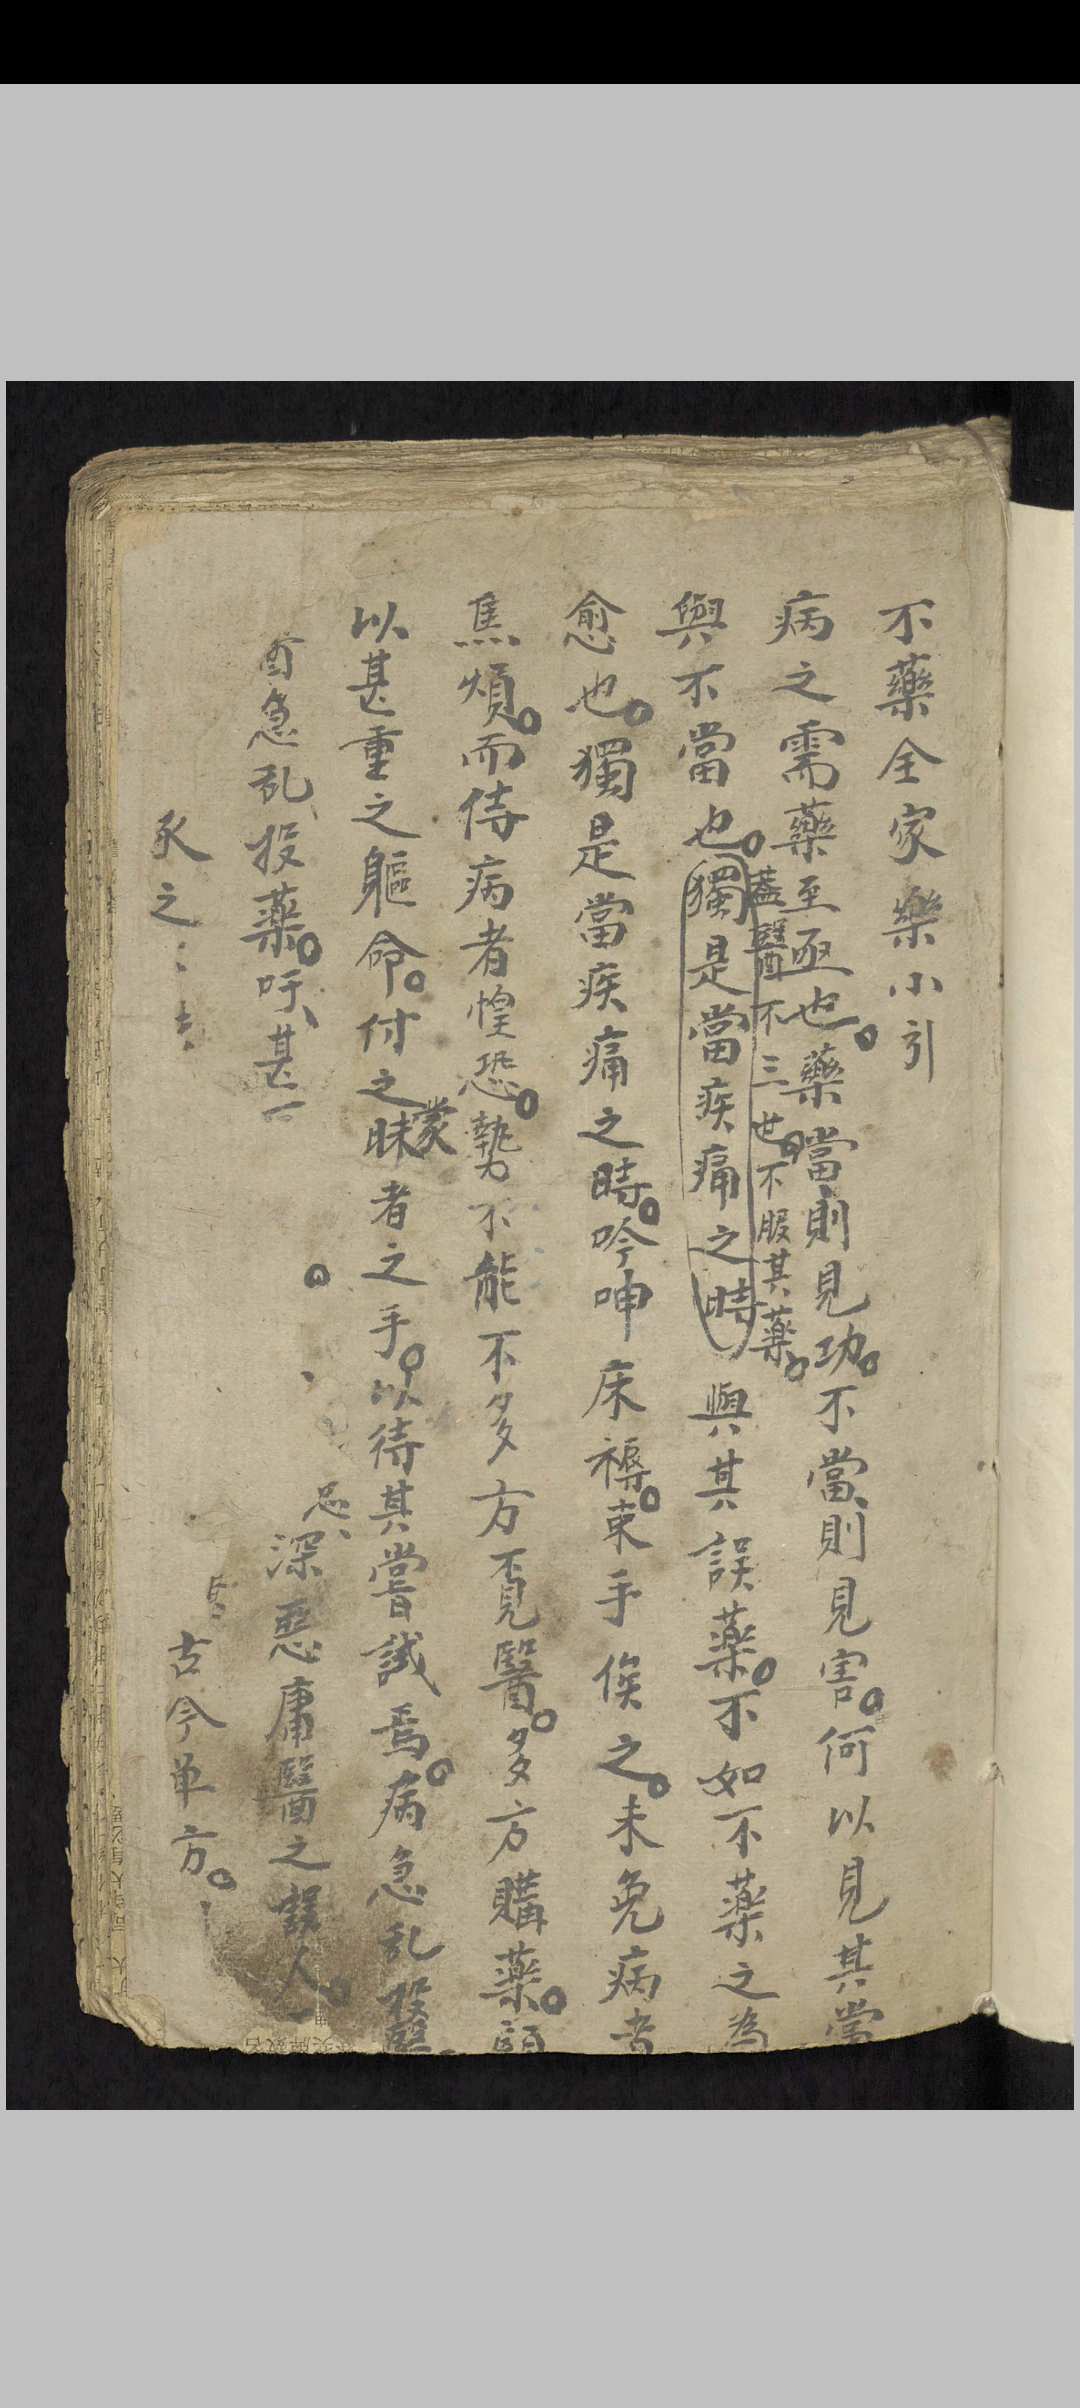 不藥全家樂小引
病之需藥至亟也。藥當則見功。不當則見害。何以見其當
蓋醫不三世。不服其藥。
與不當也。獨是當疾痛之時與其誤藥。不如不藥之為
愈也。獨是當疾痛之時。吟呻床褥。束手俟之。未免病者
焦煩。而侍病者惶恐。勢不能不多方覓醫。多方購藥。
以甚重之軀命。付之昧者之手。以待其嘗試焉。病急乱投醫
蒙
酉急乱投藥。吁、甚一
深惡庸醫之誤人
承之
古今单方。